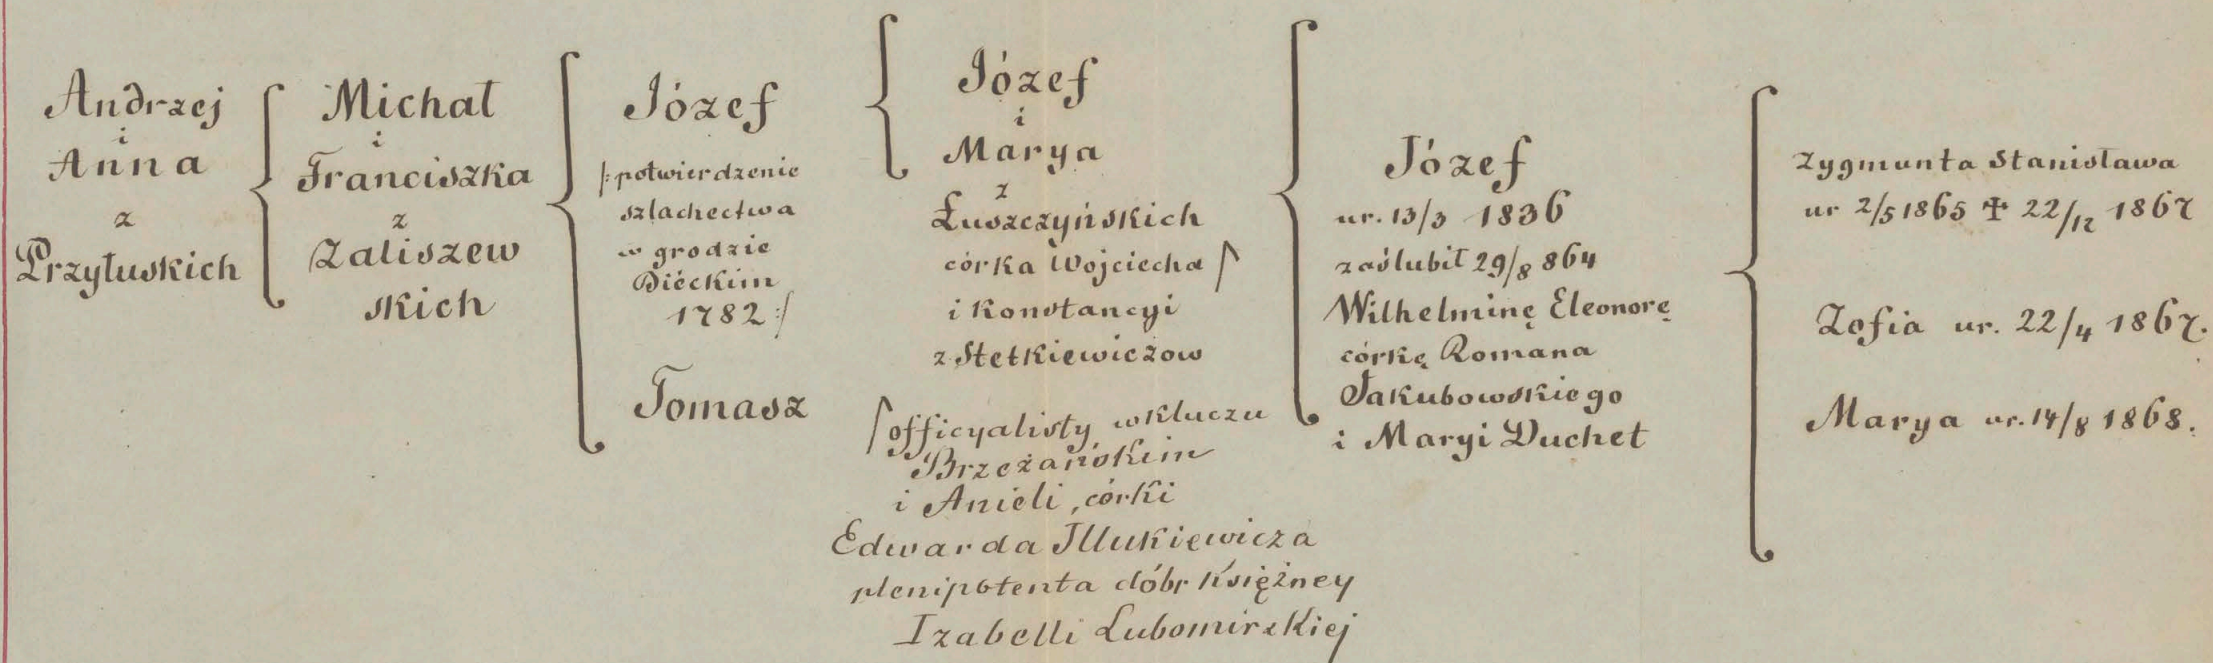 Andrzej
i
Anna
z
Przyłuskich
Michał
i
Franciszka
z
Zaliszew
skich
Józef
/: potwierdzenie
szlachectwa
w grodzie
Bieckim
1782 :/
Tomasz
Józef
i
Marya
z
Łuszczyńskich
córka Wojciecha /
i Konstancyi
z Stetkiewiczow
/ officyalisty w kluczu
Brzeżańskim
i Anieli, córki
Edwarda Illukiewicza
plenipotenta dóbr Księżney
Izabelli Lubomirskiej
Józef
ur. 13/3 1836
zaślubił 29/8 864
Wilhelminę Eleonorę
córkę Romana
Jakubowskiego
i Maryi Duchet
Zygmunta Stanisława
ur 2/5 1865 ✝ 22/12 1867
Zofia ur. 22/4 1867.
Marya ur. 14/8 1868.